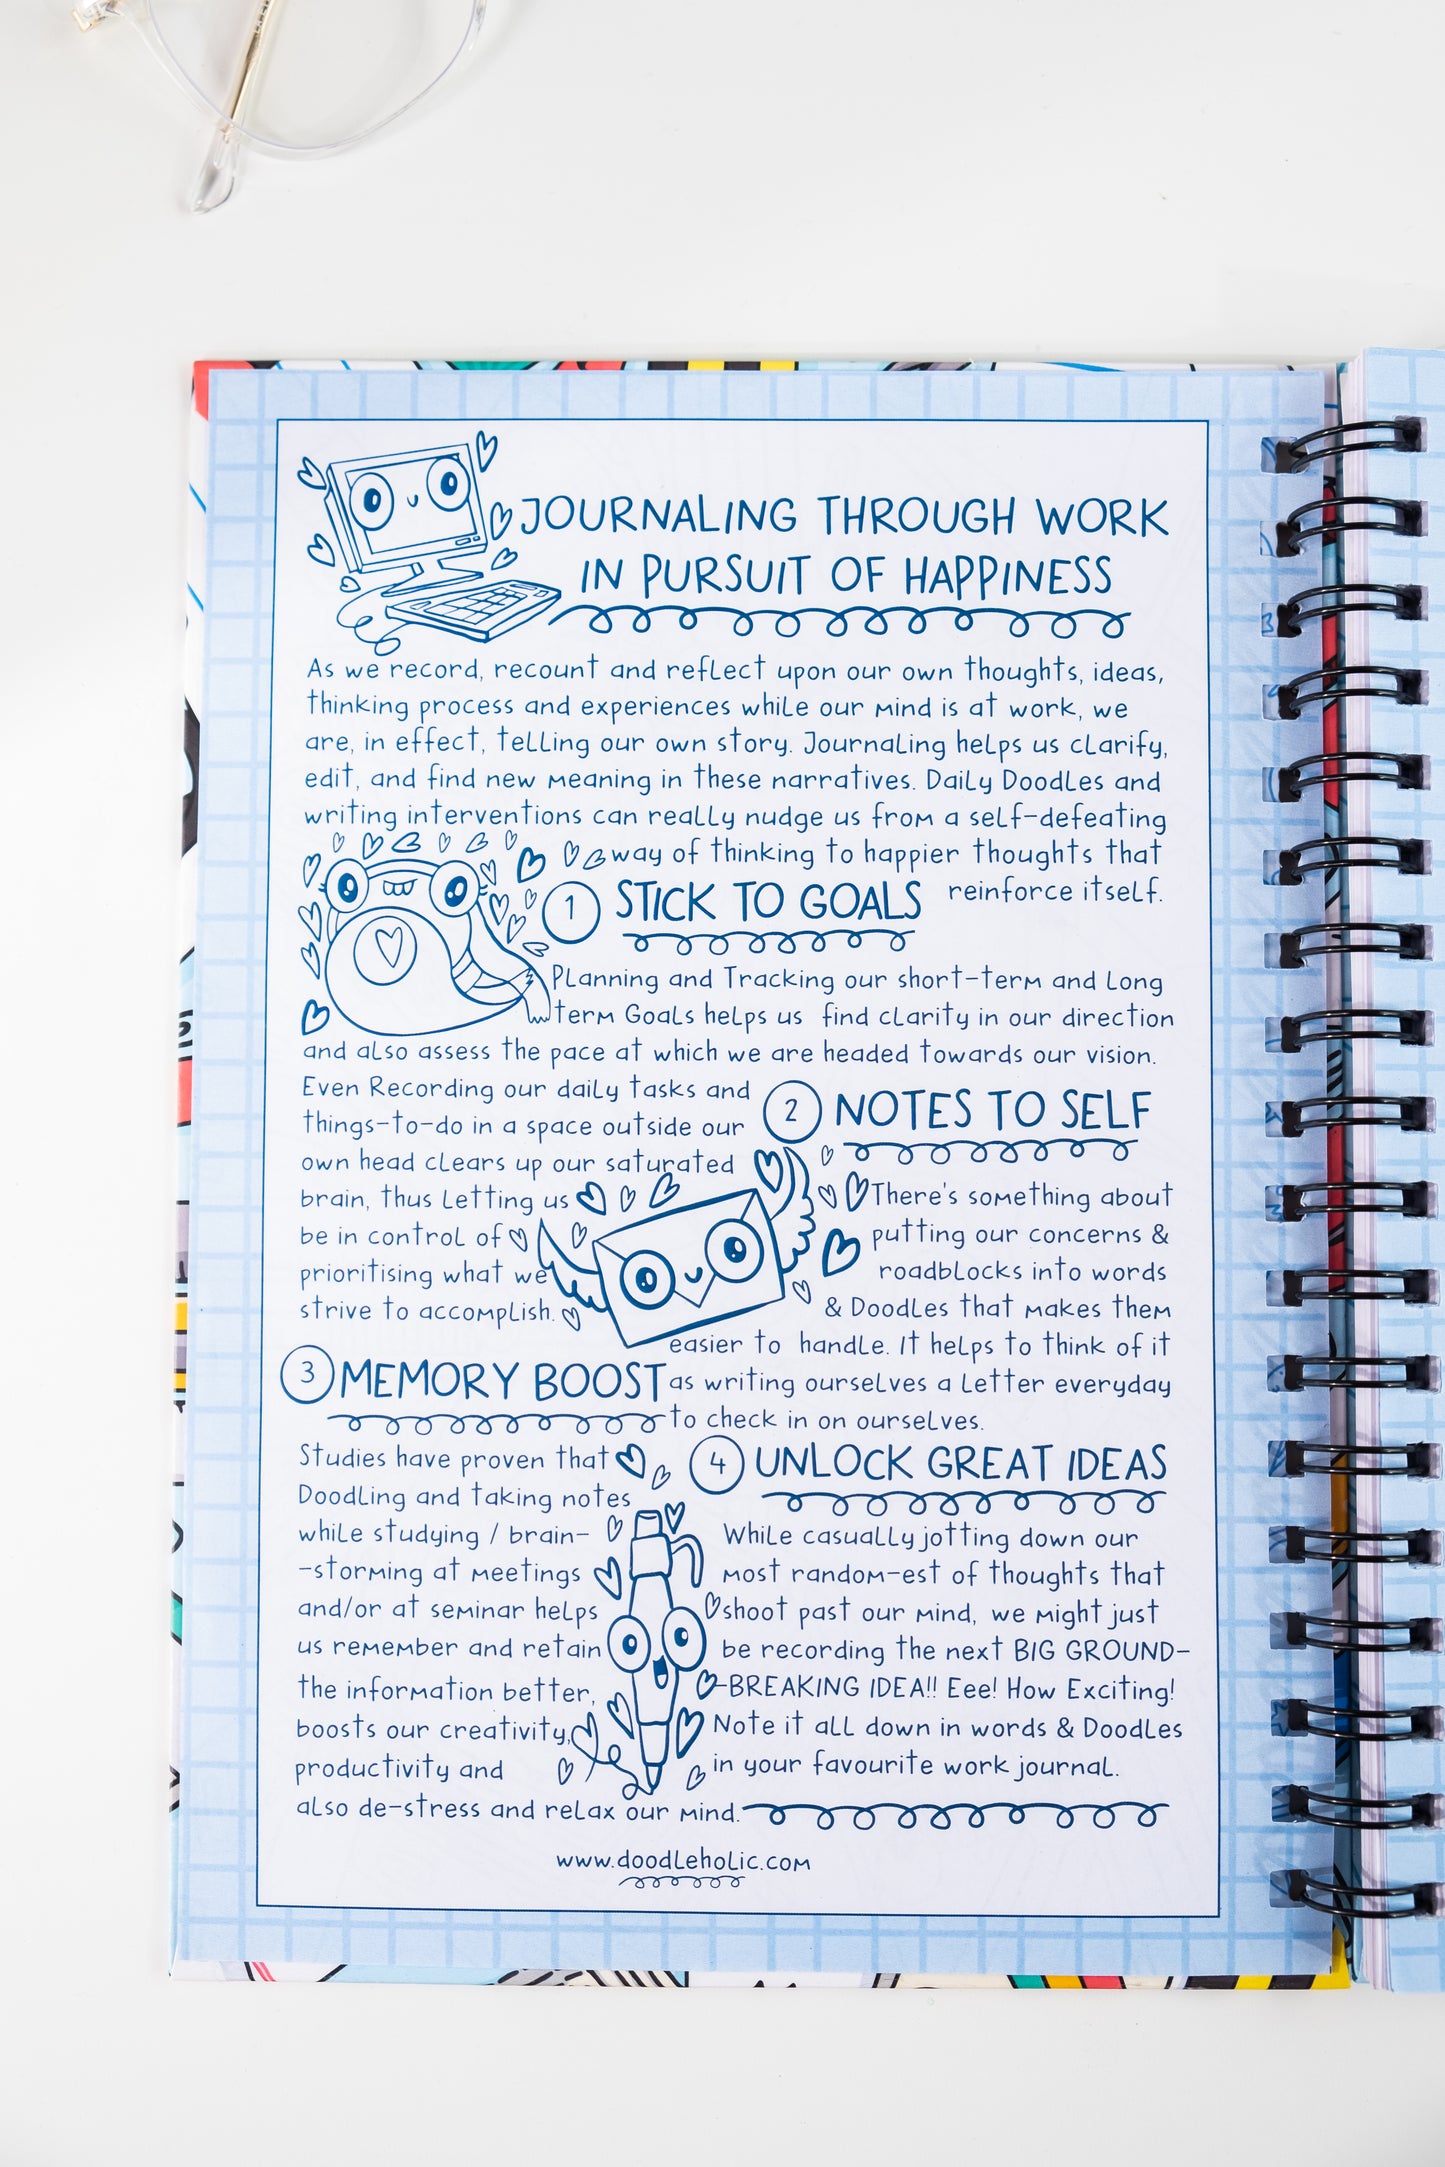 JOURNALING THROUGH WORK
IN PURSUIT OF HAPPINESS
As we record, recount and reflect upon our own thoughts, ideas,
thinking process and experiences while our mind is at work, we
are, in effect, telling our own story. Journaling helps us clarify,
edit, and find new meaning in these narratives. Daily Doodles and
writing interventions can really nudge us from a self-defeating
way of thinking to happier thoughts that
reinforce itself.
1 STICK TO GOALS
Planning and Tracking our short-term and Long
term Goals helps us find clarity in our direction
and also assess the pace at which we are headed towards our vision.
Even Recording our daily tasks and
things-to-do in a space outside our
own head clears up our saturated
brain, thus letting us
be in control of
prioritising what we
strive to accomplish.
2 NOTES TO SELF
There's something about
putting our concerns &
roadblocks into words
& Doodles that makes them
easier to handle. It helps to think of it
as writing ourselves a letter everyday
to check in on ourselves.
3 MEMORY BOOST
Studies have proven that
Doodling and taking notes
while studying / brain-
-storming at meetings
and/or at seminar helps
us remember and retain
the information better,
boosts our creativity,
productivity and
also de-stress and relax our mind.
4 UNLOCK GREAT IDEAS
While casually jotting down our
most random-est of thoughts that
shoot past our mind, we might just
be recording the next BIG GROUND-
-BREAKING IDEA!! Eee! How Exciting!
Note it all down in words & Doodles
in your favourite work journal.
www.doodleholic.com